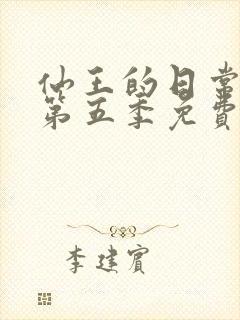 仙王的日常
第五季免費
李建賓